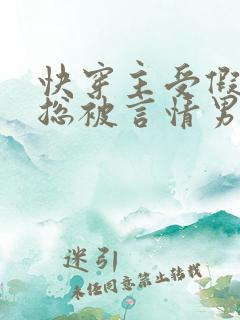 快穿主受假
总被言情男
迷引
未经同意禁止转载